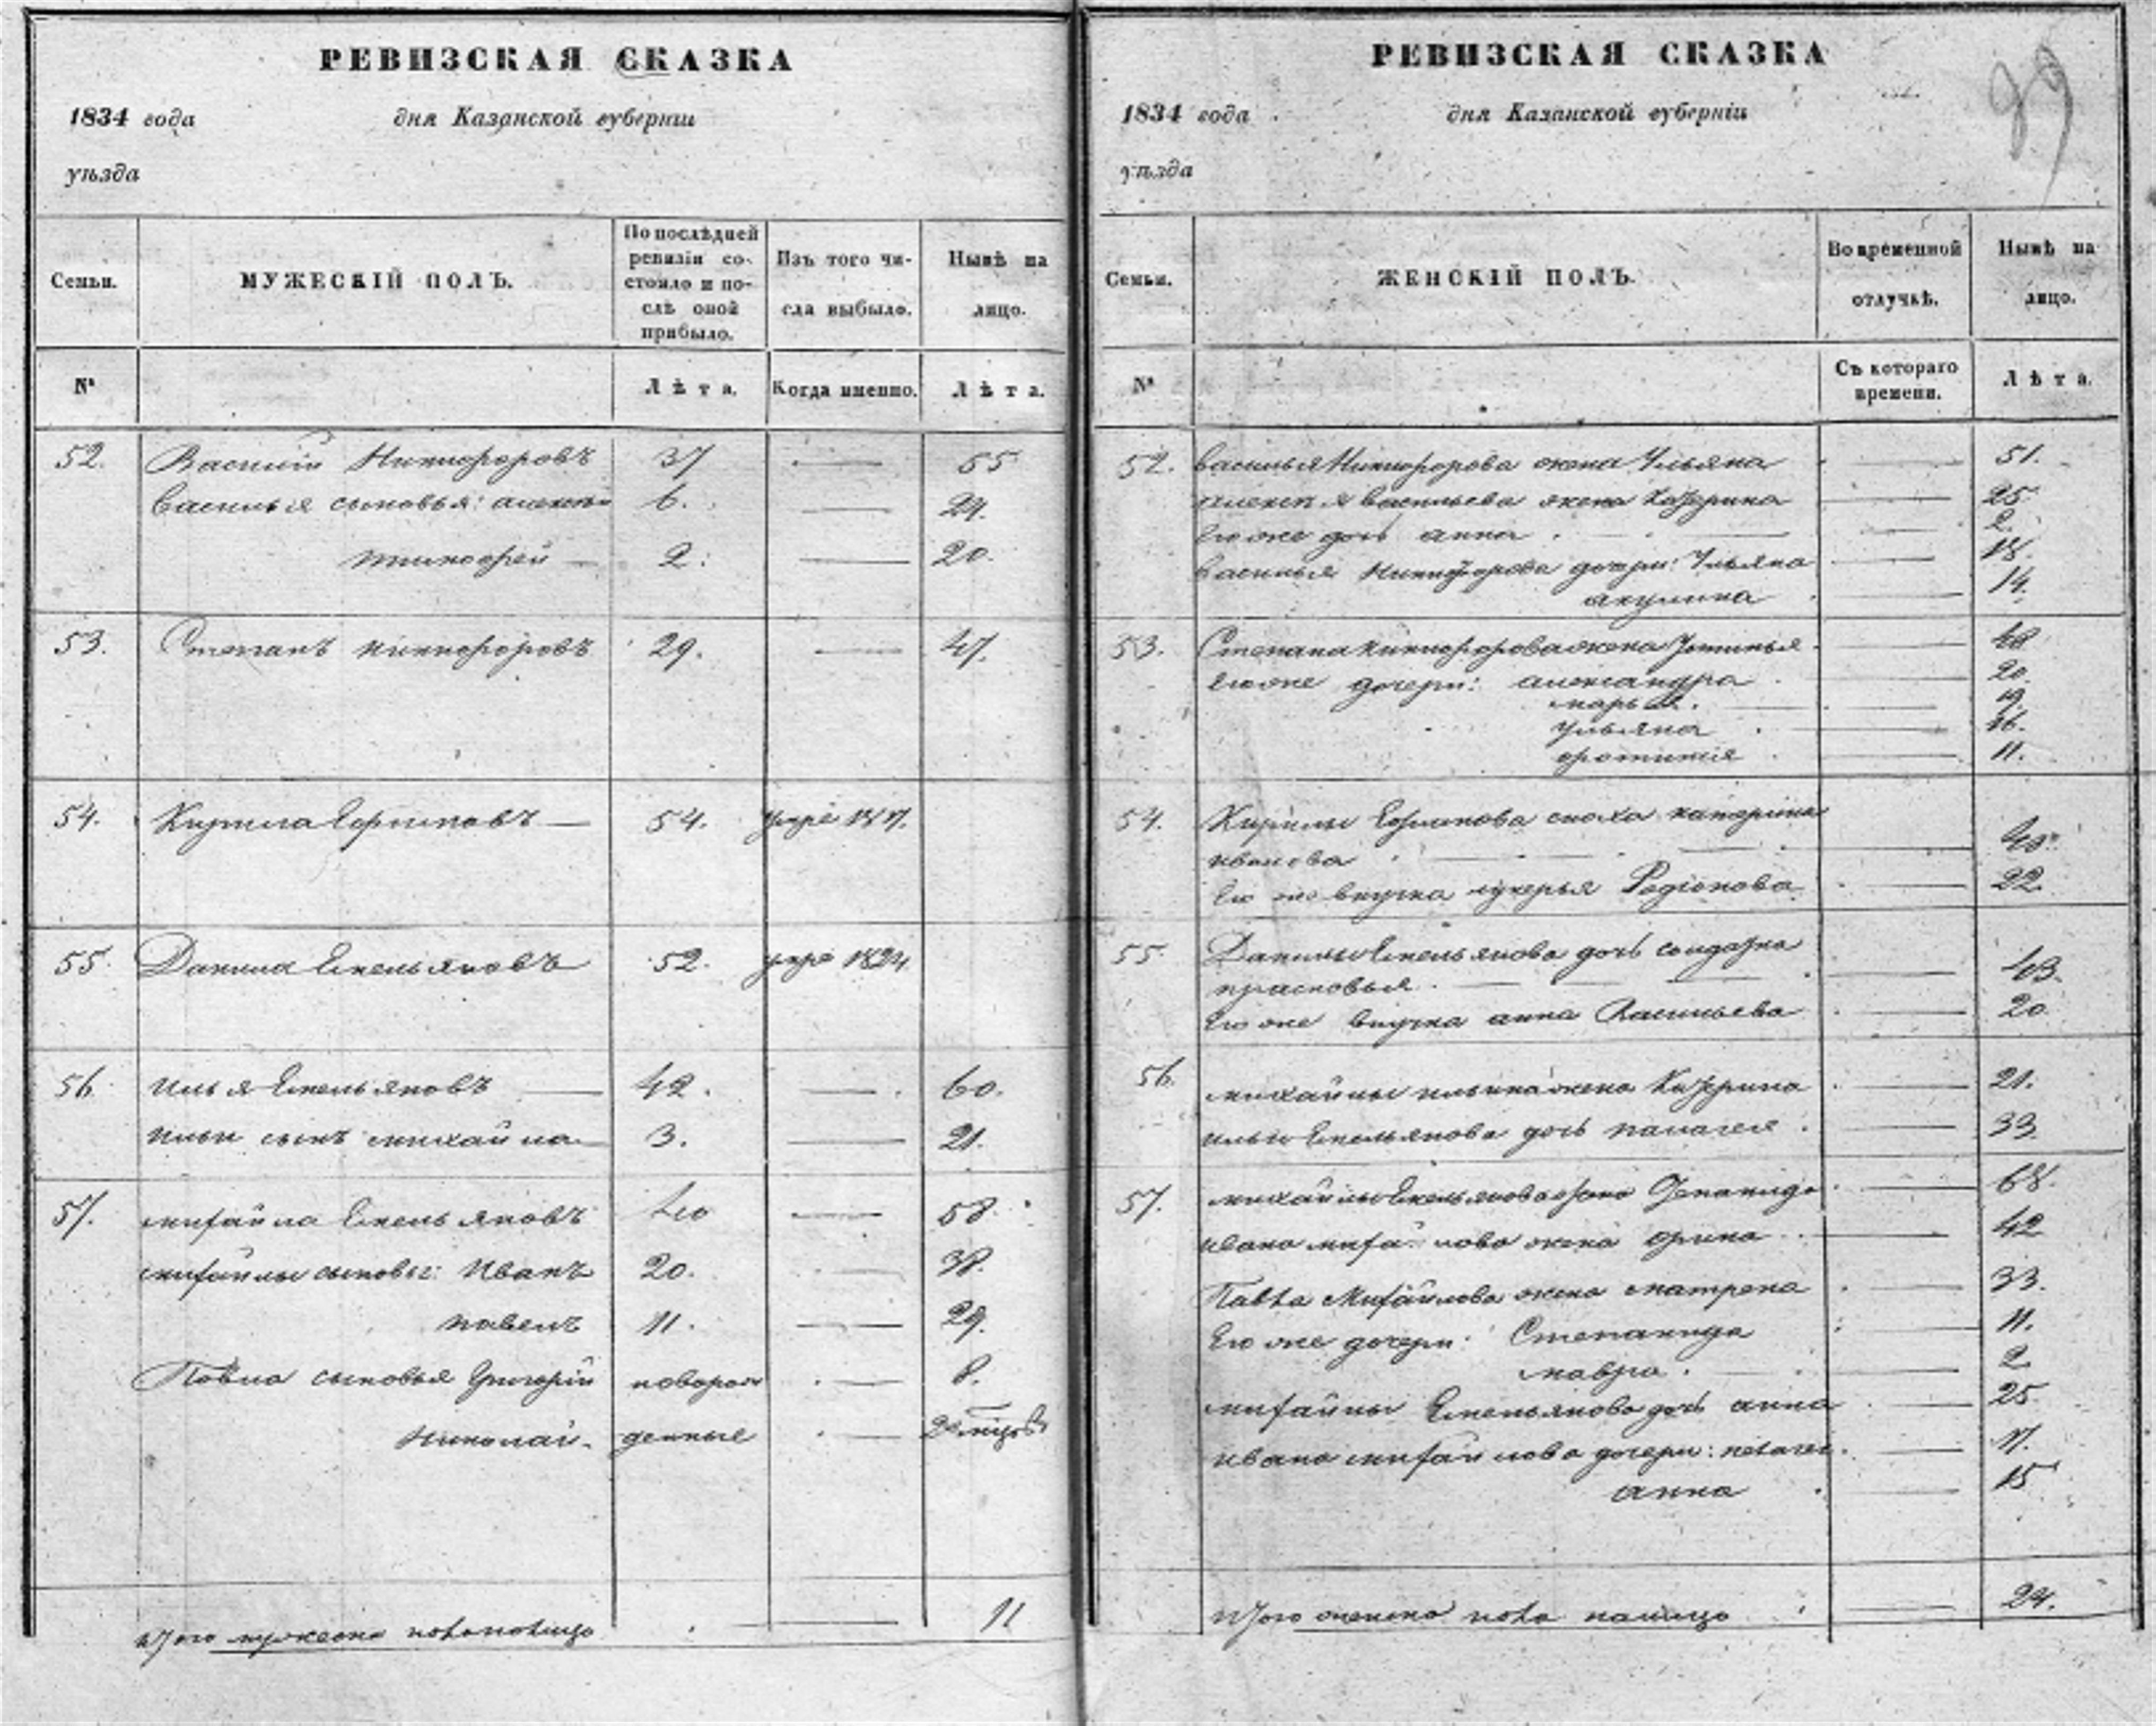 РЕВИЗСКАЯ СКАЗКА
1834 года дня Казанской губерніи
уѣзда
Семьи. МУЖЕСКІЙ ПОЛЪ. По послѣдней ревизіи состояло и послѣ оной прибыло. Изъ того числа выбыло. Нынѣ на лицо.
№ Лѣта. Когда именно. Лѣта.
52. Василій Никифоровъ 37 — 55
Василья сыновья: алексѣй 6. — 24.
тимофей — 2. — 20.
53. Степанъ никифоровъ 29. — 47.
54. Кирила Ефимовъ — 54. умре 1817.
55. Данила Емельяновъ 52. умре 1824
56. илья Емельяновъ — 42. — 60.
ильи сынъ михайла — 3. — 21.
57. михайла Емельяновъ 40 — 58.
михайлы сыновья: Иванъ 20. — 38.
павелъ 11. — 29.
Павла сыновья Григорій новорож — 8.
Николай. денные — 2 мцовъ
Итого мужеска пола налицо — 11
РЕВИЗСКАЯ СКАЗКА
39
1834 года дня Казанской губерніи
уѣзда
Семьи. ЖЕНСКІЙ ПОЛЪ. Во временной отлучкѣ. Нынѣ на лицо.
№ Съ котораго времени. Лѣта.
52. Василья Никифорова жена Ульяна — 51.
алексѣя васильева жена Катерина — 25.
Его же дочь анна — 2.
василья Никифорова дочери: Ульяна — 18.
акулина — 14.
53. Степана никифорова жена Устинья — 48
Его же дочери: александра — 20.
марья — 19.
ульяна — 16.
фотинія — 11.
54. Кирилы Ефимова сноха катерина
иванова — 40.
Его же внучка лукерья Родіонова — 22.
55. Данилы Емельянова дочь солдатка
прасковья — 43.
Его же внучка анна Васильева — 20.
56. михайлы ильина жена Катерина — 21.
ильи Емельянова дочь палагея — 33.
57. михайлы Емельянова жена — 68.
ивана михайлова жена орина — 42
Павла Михайлова жена матрена — 33.
Его же дочери: Степанида — 11.
мавра — 2
михайлы Емельянова дочь анна — 25.
ивана михайлова дочери: — 17.
анна — 15
Итого женска пола налицо — 24.